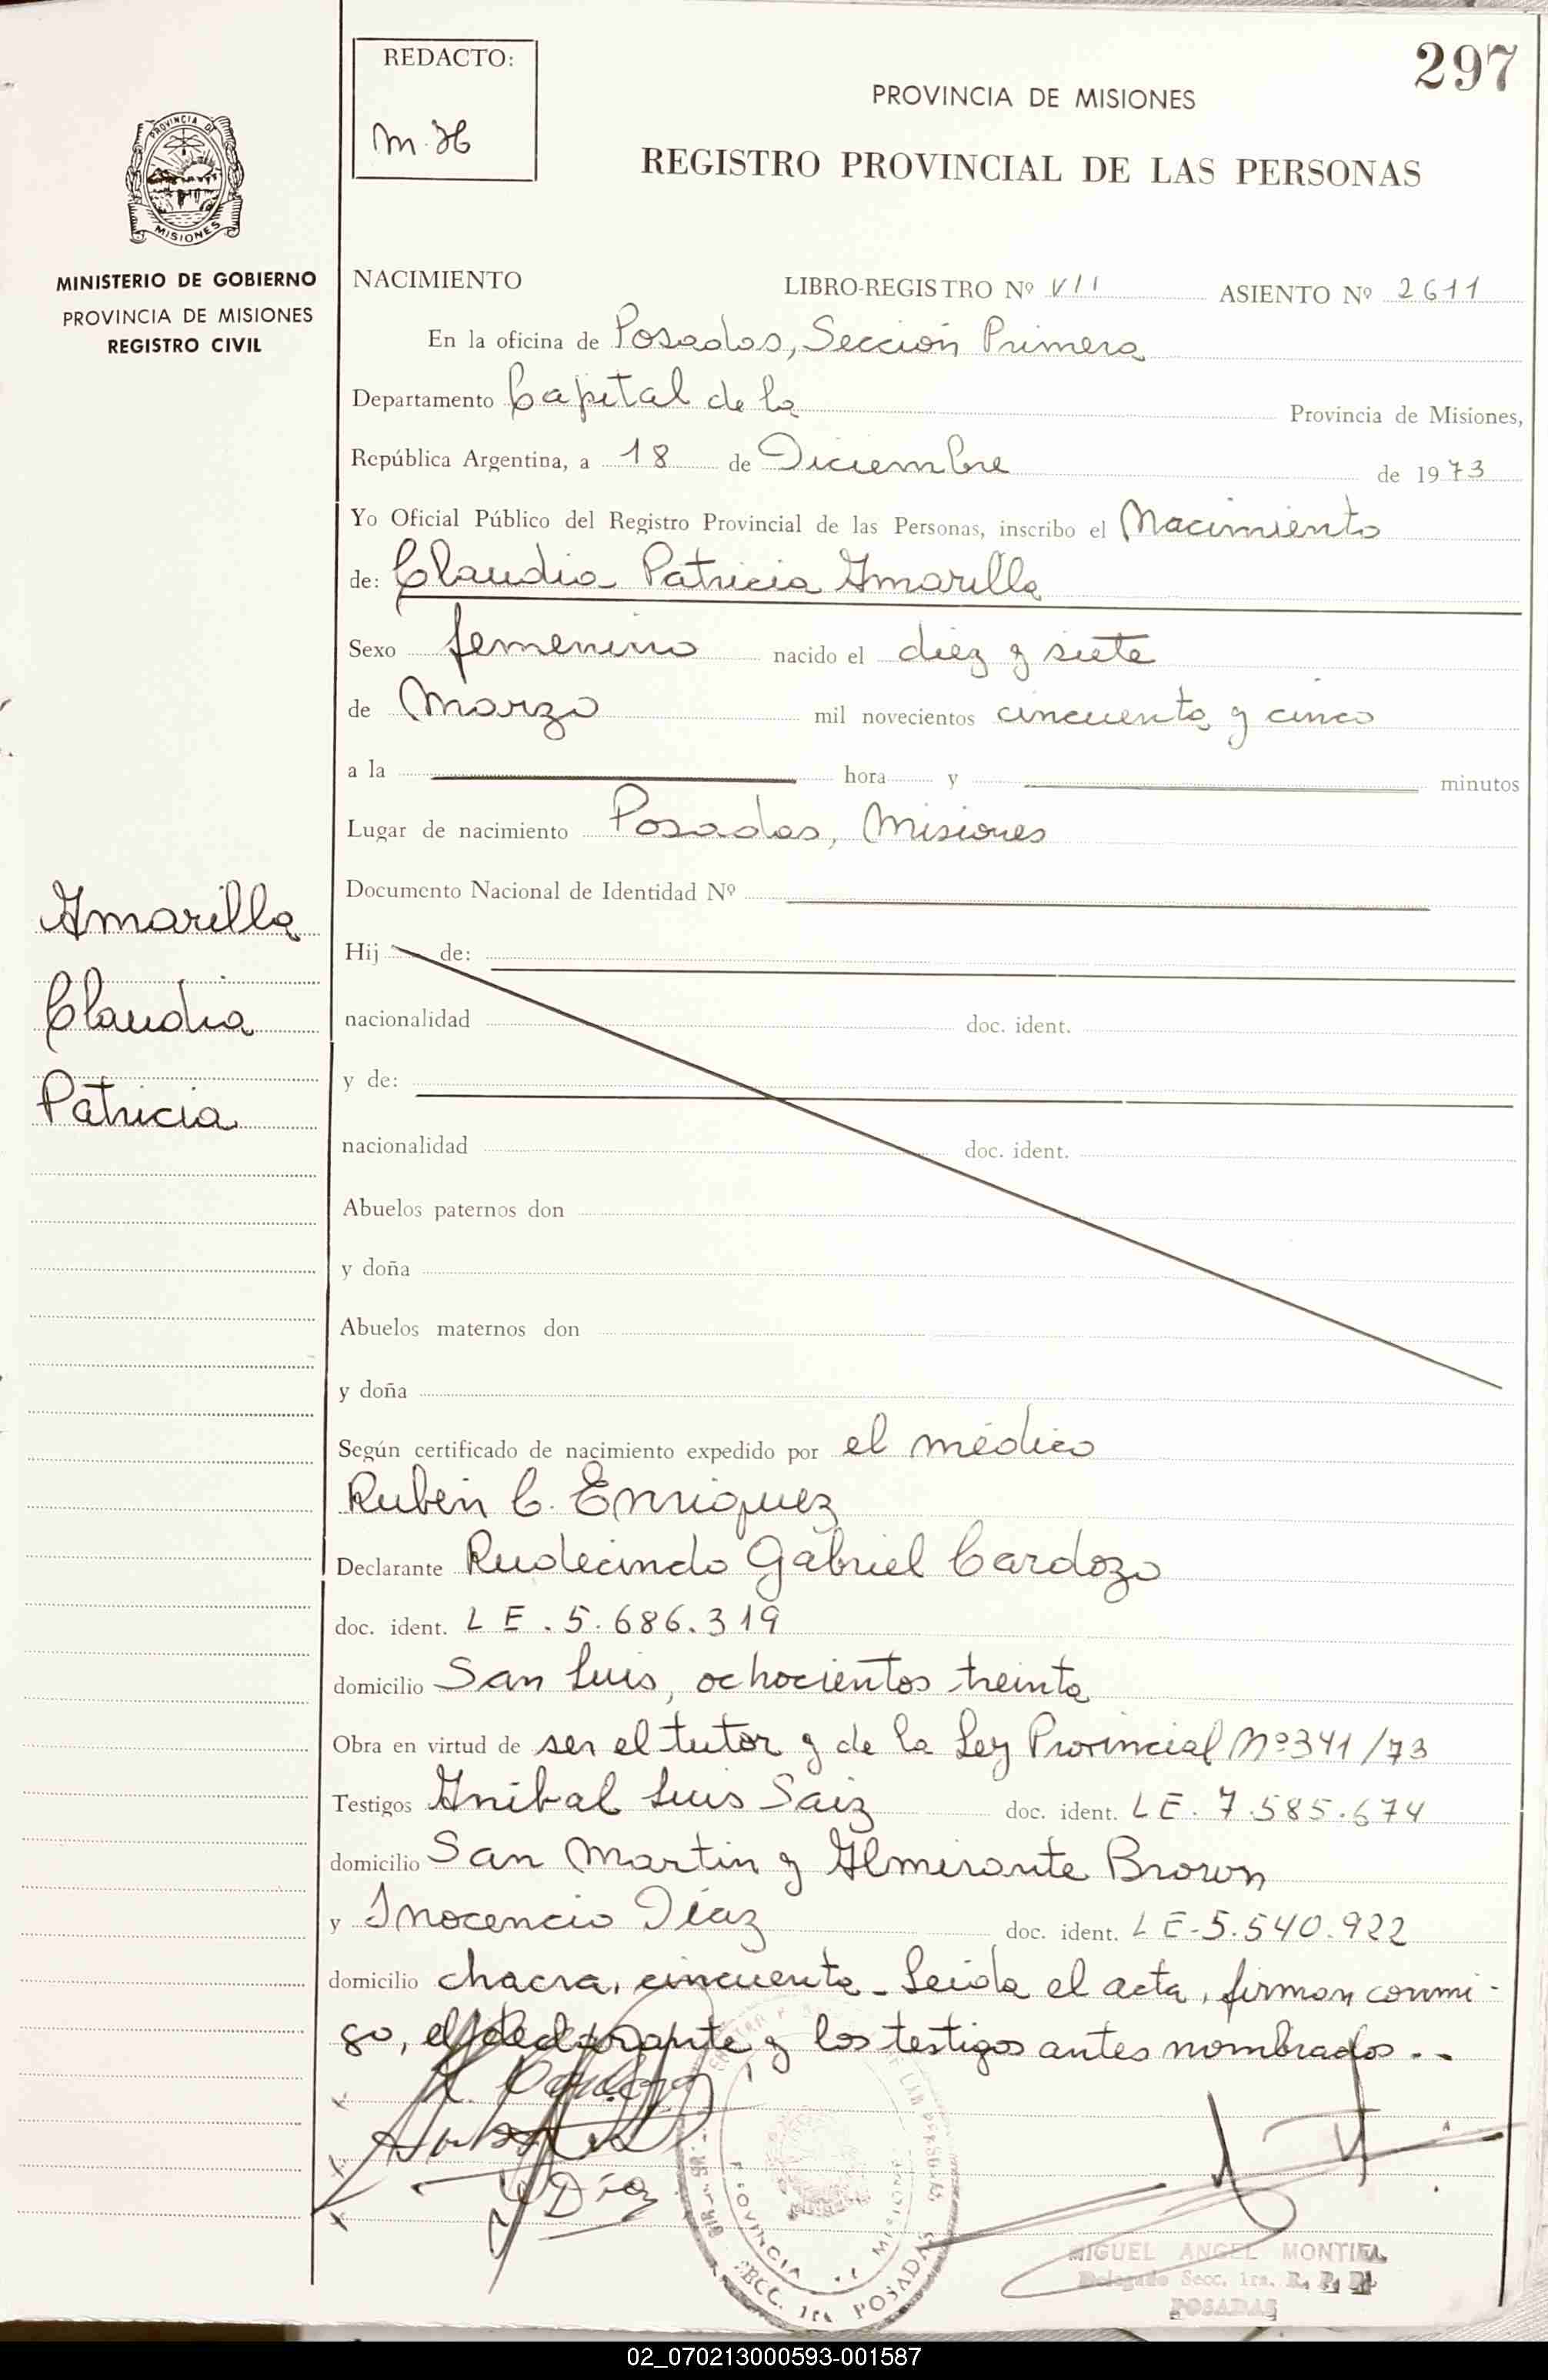 REDACTO:
M.H
297
PROVINCIA DE MISIONES
REGISTRO PROVINCIAL DE LAS PERSONAS
PROVINCIA DE
MISIONES
MINISTERIO DE GOBIERNO
PROVINCIA DE MISIONES
REGISTRO CIVIL
NACIMIENTO LIBRO-REGISTRO Nº VII ASIENTO Nº 2611
En la oficina de Posadas, Sección Primera
Departamento Capital de la Provincia de Misiones,
República Argentina, a 18 de Diciembre de 1973
Yo Oficial Público del Registro Provincial de las Personas, inscribo el Nacimiento
de: Claudia Patricia Amarilla
Sexo femenino nacido el diez y siete
de Marzo mil novecientos cincuenta y cinco
a la hora y minutos
Lugar de nacimiento Posadas, Misiones
Documento Nacional de Identidad Nº
Amarilla
Claudia
Patricia
Hij de:
nacionalidad doc. ident.
y de:
nacionalidad doc. ident.
Abuelos paternos don
y doña
Abuelos maternos don
y doña
Según certificado de nacimiento expedido por el médico
Rubén C. Enriquez
Declarante Rudecindo Gabriel Cardozo
doc. ident. L E. 5.686.319
domicilio San Luis, ochocientos treinta
Obra en virtud de ser el tutor y de la Ley Provincial Nº 341/73
Testigos Anibal Luis Saiz doc. ident. L E. 7.585.674
domicilio San Martin y Almirante Brown
y Inocencio Díaz doc. ident. L E-5.540.922
domicilio chacra, cincuenta_ Leida el acta, firman conmi-
go, el declarante y los testigos antes nombrados..
Díaz
PROVINCIA DE MISIONES
SECC. 1ra POSADAS
MIGUEL ANGEL MONTIEL
Delegado Secc. 1ra. R. P. P.
POSADAS
02_070213000593-001587